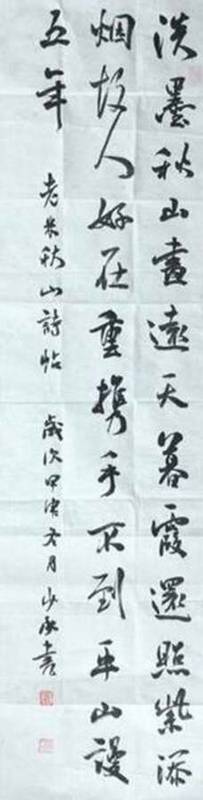 淡墨秋山畫遠天暮霞還照紫添
烟故人好在重携手不到平山謾
五年
老米秋山詩帖 歲次甲冬月書